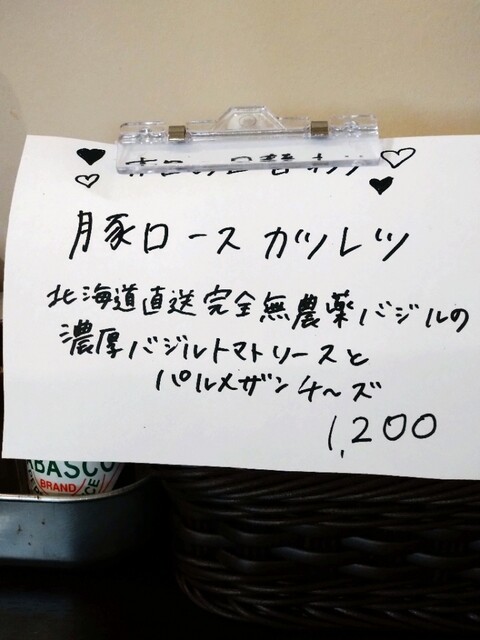 本日の日替わり
豚ロース カツレツ
北海道直送完全無農薬バジルの
濃厚バジルトマトソースと
パルメザンチ〜ズ
1,200
ABASCO
BRAND
CE